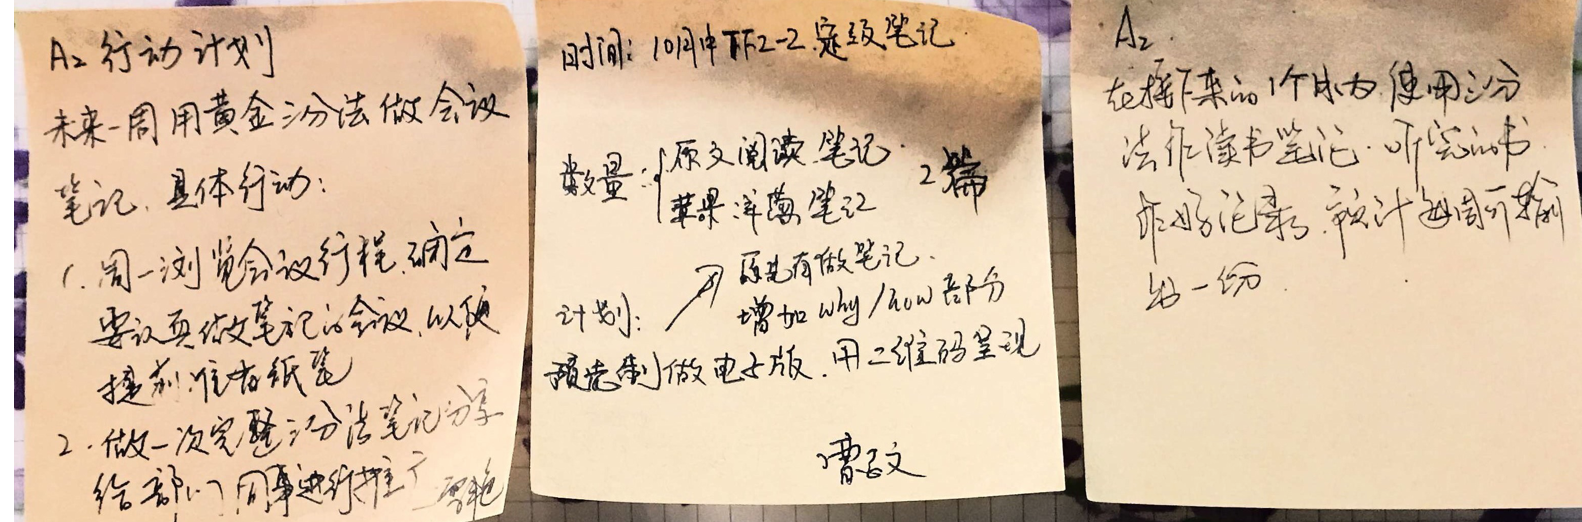 A2 行动计划
未来一周用黄金三分法做会议
笔记、具体行动：
1. 周一浏览会议行程、确定
要认真做笔记的会议，以便
提前准备纸笔
2. 做一次完整三分法笔记分享
给部门同事进行推广
时间：10月中下 笔记
数量： 原文阅读笔记. 2篇
苹果 笔记
原先有做笔记.
计划： 增加 why/how 部分
做电子版. 用二维码呈现
曹 文
A2.
在接下来的1个月内 使用三分
法作读书笔记. 听完的书
作好记录, 预计每周可输
出一份.